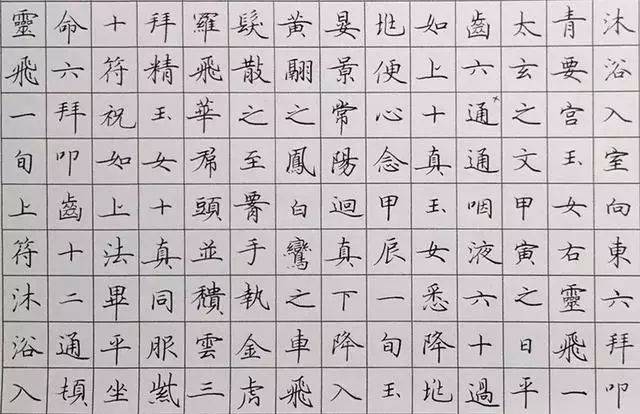 沐浴入室向東六拜叩
青要宫玉女右靈飛一
太玄之文甲寅之日平
齒六通通咽液六十過
如上十真玉女悉降地
地便心念甲辰一旬玉
晏景常陽迴真下降入
黃翮之鳳白鸞之車飛
髮散之至腰手執金虎
羅飛華帬頭並穨雲三
拜精玉女十真同服紫
十符祝如上法畢平坐
命六拜叩齒十二通頓
靈飛一旬上符沐浴入